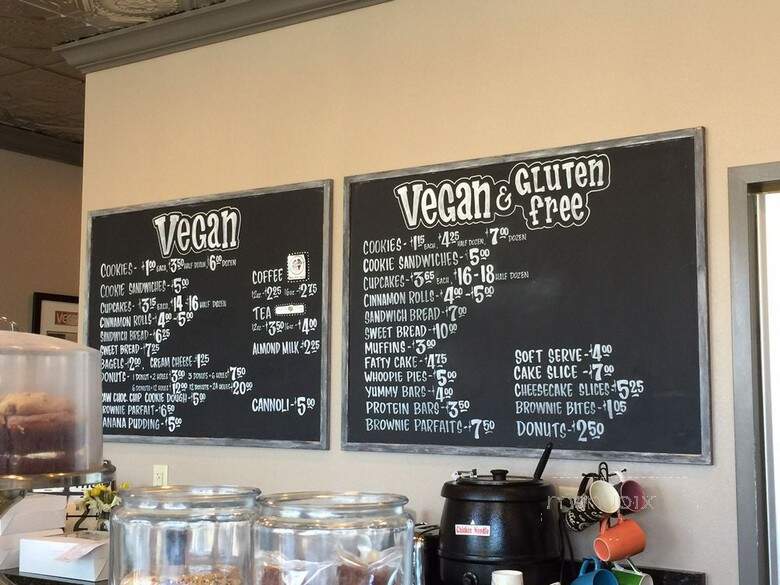 Vegan
COOKIES - $1.00 EACH, $3.50 HALF DOZEN, $6.00 DOZEN
COOKIE SANDWICHES - $5.00
CUPCAKES - $3.15 EACH, $14 - $16 HALF DOZEN
CINNAMON ROLLS - $4.00 - $5.00
SANDWICH BREAD - $6.25
SWEET BREAD - $7.25
BAGELS - $2.00, CREAM CHEESE - $1.25
DONUTS - 1 DONUT + 2 HOLES $3.00 3 DONUTS + 6 HOLES $7.50
6 DONUTS + 12 HOLES $12.00 12 DONUTS + 24 HOLES $20.00
AW CHOC. CHIP COOKIE DOUGH - $5.00
BROWNIE PARFAIT - $6.50
ANANA PUDDING - $5.00
COFFEE
12oz - $2.25 16oz - $2.75
TEA
12oz - $3.50 16oz - $4.00
ALMOND MILK - $2.25
CANNOLI - $5.00
Vegan & GLUTEN free
COOKIES - $1.15 EACH, $4.25 HALF DOZEN, $7.00 DOZEN
COOKIE SANDWICHES - $5.00
CUPCAKES - $3.65 EACH, $16 - 18 HALF DOZEN
CINNAMON ROLLS - $4.00 - $5.00
SANDWICH BREAD - $7.00
SWEET BREAD - $10.00
MUFFINS - $3.00
FATTY CAKE - $4.75
WHOOPIE PIES - $5.00
YUMMY BARS - $4.00
PROTEIN BARS - $3.50
BROWNIE PARFAITS - $7.50
SOFT SERVE - $4.00
CAKE SLICE - $7.00
CHEESECAKE SLICES - $5.25
BROWNIE BITES - $1.05
DONUTS - $2.50
Chicken Noodle